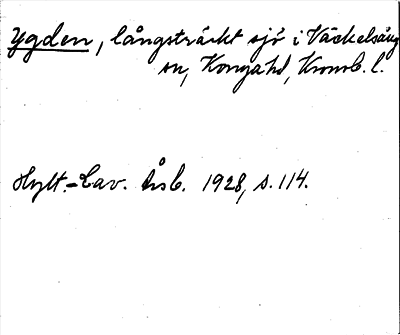 Ygden, långsträckt sjö i Väckelsång
sn, Konga hd, Kronob. l.
Hylt.-Cav. Årsb. 1928, s. 114.